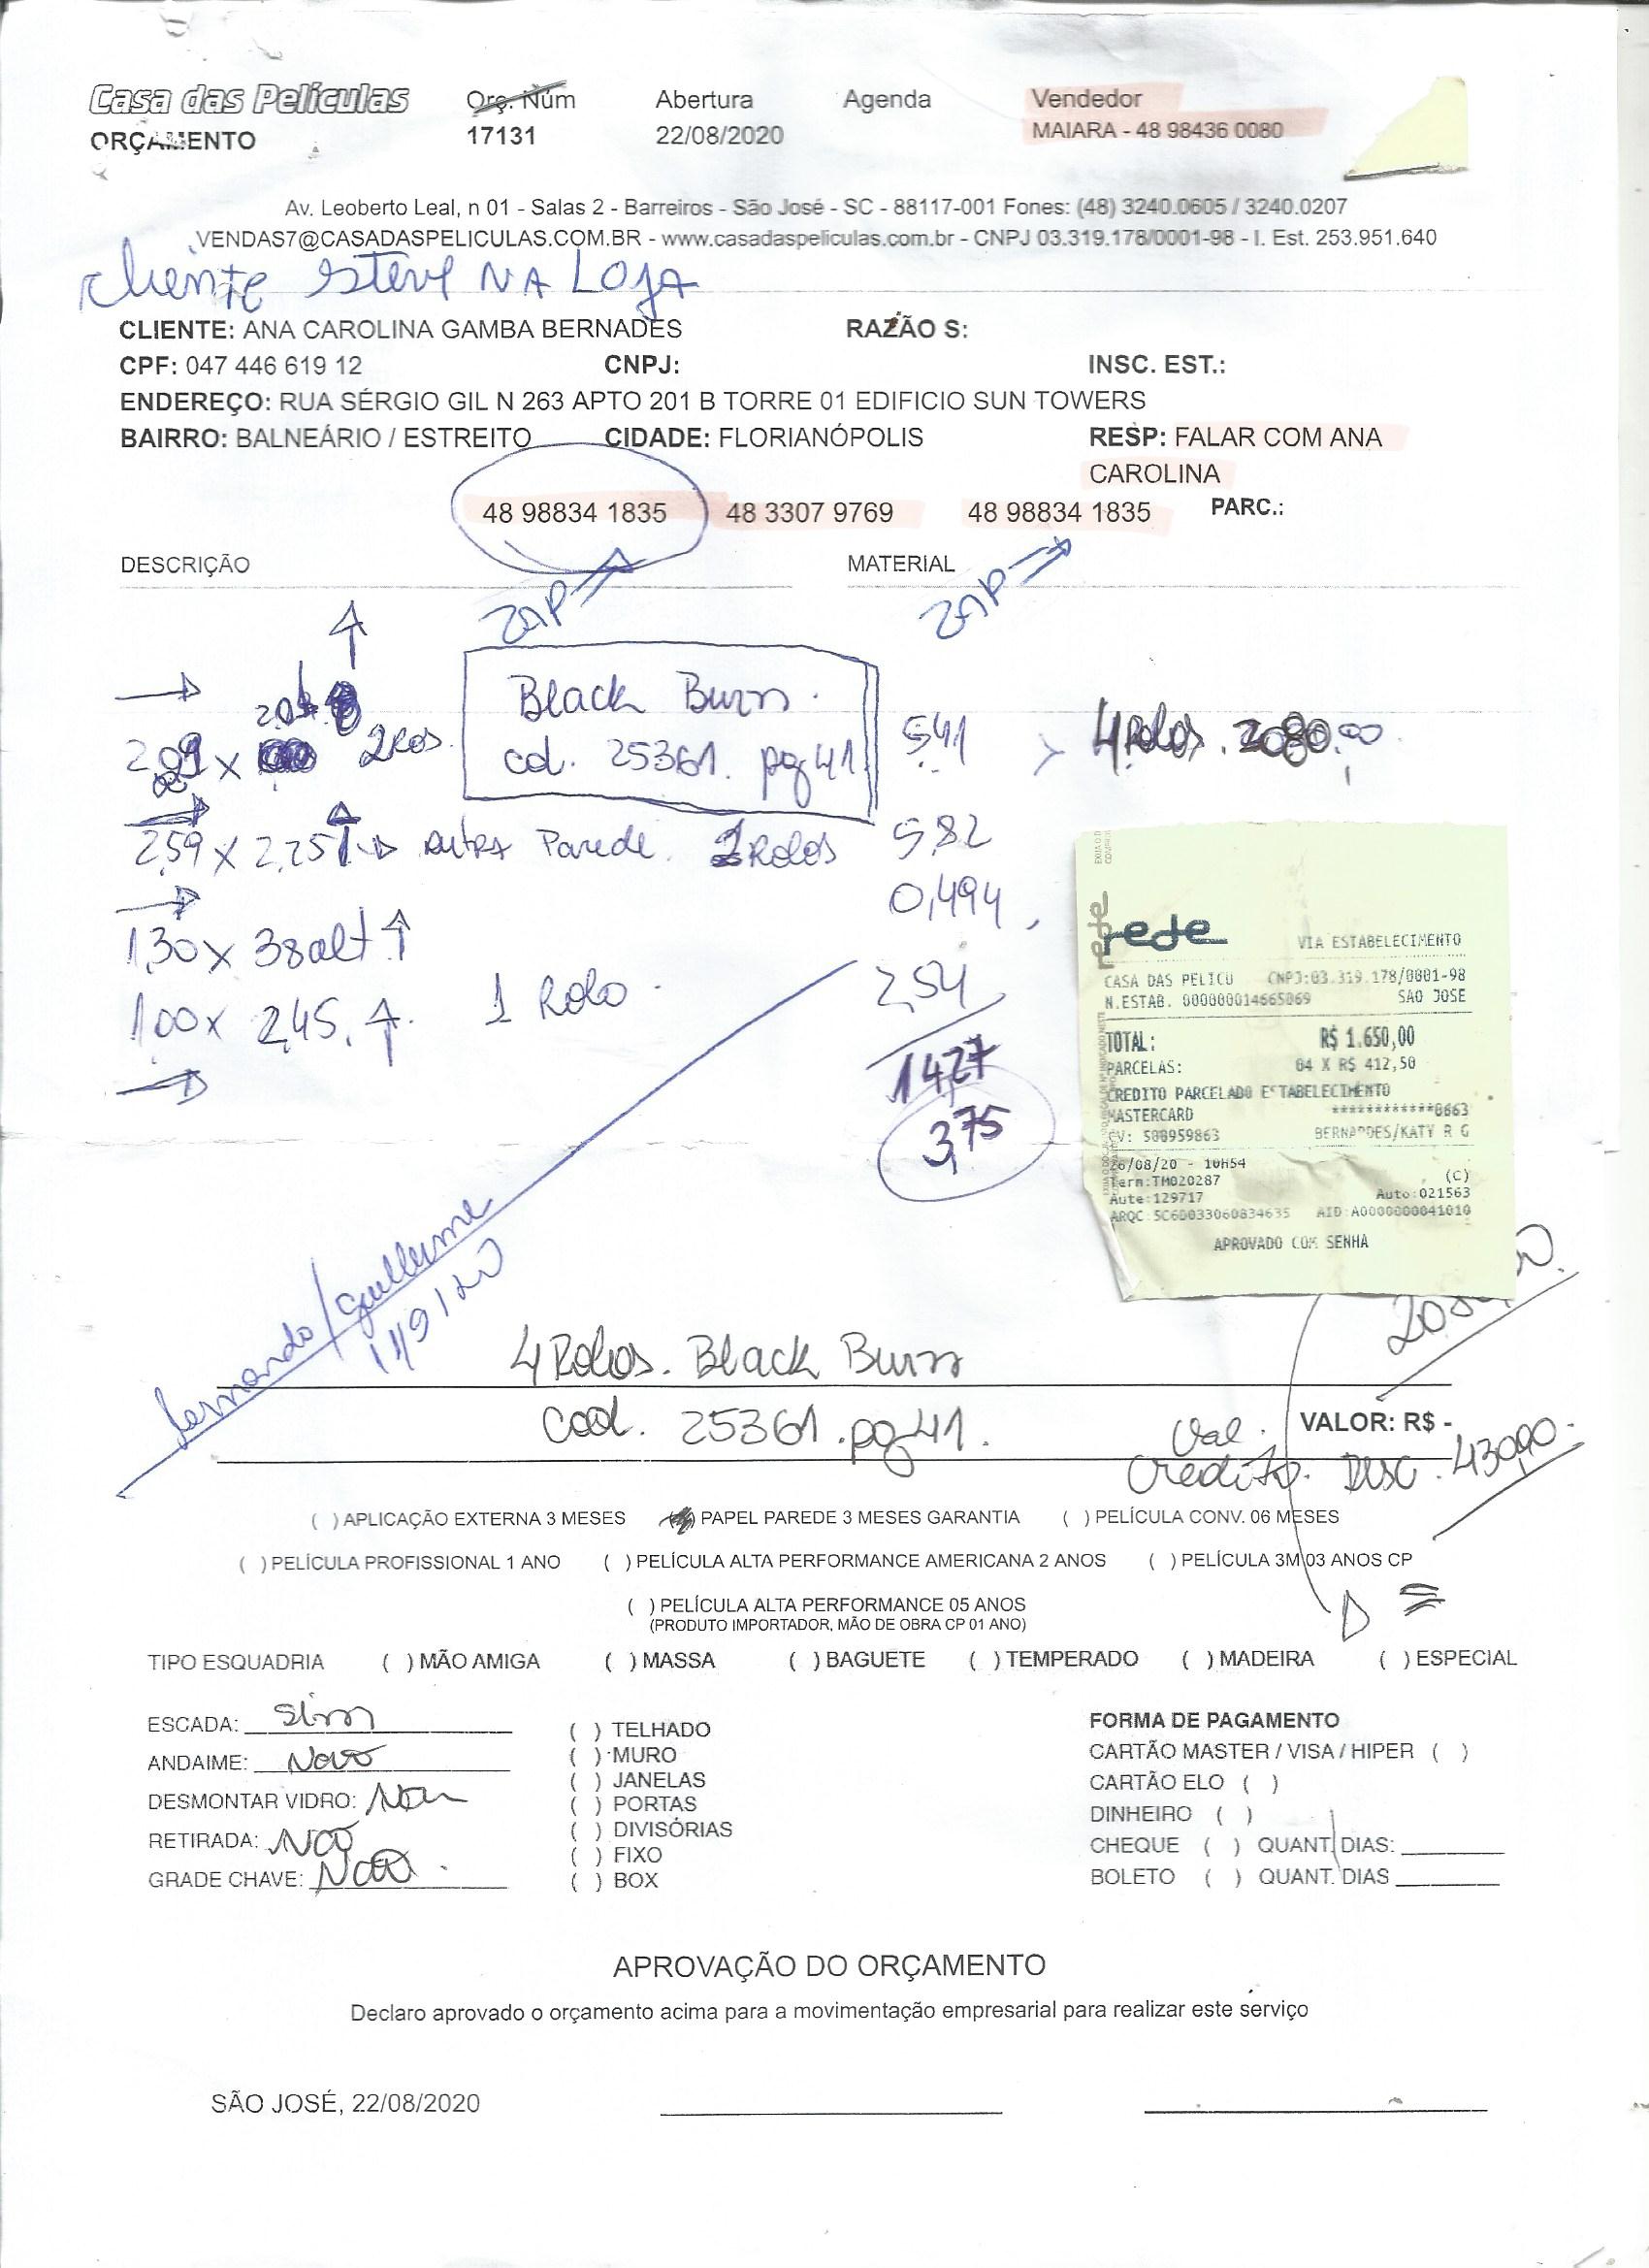 Casa das Películas
ORÇAMENTO
Orç. Núm
17131
Abertura
22/08/2020
Agenda
Vendedor
MAIARA - 48 98436 0080
Av. Leoberto Leal, n 01 - Salas 2 - Barreiros - São José - SC - 88117-001 Fones: (48) 3240.0605 / 3240.0207
VENDAS7@CASADASPELICULAS.COM.BR - www.casadaspeliculas.com.br - CNPJ 03.319.178/0001-98 - I. Est. 253.951.640
Cliente esteve NA LOJA
CLIENTE: ANA CAROLINA GAMBA BERNADES RAZÃO S:
CPF: 047 446 619 12 CNPJ: INSC. EST.:
ENDEREÇO: RUA SÉRGIO GIL N 263 APTO 201 B TORRE 01 EDIFICIO SUN TOWERS
BAIRRO: BALNEÁRIO / ESTREITO CIDADE: FLORIANÓPOLIS RESP: FALAR COM ANA
CAROLINA
48 98834 1835 48 3307 9769 48 98834 1835 PARC.:
DESCRIÇÃO MATERIAL
ZAP ZAP
Black Burn.
cod. 25361. pg 41
2,09 x 2 Rolos. 5,41 4 Rolos. 2080,00
2,59 x 2,25 outra Parede. 2 Rolos 5,82
0,494
1,30 x 38 alt
1,00 x 2,45. 1 Rolo. 2,54
14,27
3,75
rede
rede
VIA ESTABELECIMENTO
CASA DAS PELICU CNPJ:03.319.178/0001-98
N.ESTAB. 000000014665069 SAO JOSE
TOTAL: R$ 1.650,00
PARCELAS: 04 X R$ 412,50
CREDITO PARCELADO ESTABELECIMENTO
MASTERCARD ************0663
CV: 500959863 BERNARDES/KATY R G
26/08/20 - 10H54
Term:TM020287 (C)
Aute:129717 Auto:021563
ARQC:5C60033060834635 AID:A0000000041010
APROVADO COM SENHA
fernando/guilherme
11/9/20
4 Rolos. Black Burn
Cod. 25361. pg 41.
Val.
VALOR: R$ -
Credito. Desc. 430,00.
( ) APLICAÇÃO EXTERNA 3 MESES PAPEL PAREDE 3 MESES GARANTIA ( ) PELÍCULA CONV. 06 MESES
( ) PELÍCULA PROFISSIONAL 1 ANO ( ) PELÍCULA ALTA PERFORMANCE AMERICANA 2 ANOS ( ) PELÍCULA 3M 03 ANOS CP
( ) PELÍCULA ALTA PERFORMANCE 05 ANOS
(PRODUTO IMPORTADOR, MÃO DE OBRA CP 01 ANO)
TIPO ESQUADRIA ( ) MÃO AMIGA ( ) MASSA ( ) BAGUETE ( ) TEMPERADO ( ) MADEIRA ( ) ESPECIAL
ESCADA: Sim
ANDAIME: Não
DESMONTAR VIDRO: Não
RETIRADA: Não
GRADE CHAVE: Não
( ) TELHADO
( ) MURO
( ) JANELAS
( ) PORTAS
( ) DIVISÓRIAS
( ) FIXO
( ) BOX
FORMA DE PAGAMENTO
CARTÃO MASTER / VISA / HIPER ( )
CARTÃO ELO ( )
DINHEIRO ( )
CHEQUE ( ) QUANT. DIAS:
BOLETO ( ) QUANT. DIAS
APROVAÇÃO DO ORÇAMENTO
Declaro aprovado o orçamento acima para a movimentação empresarial para realizar este serviço
SÃO JOSÉ, 22/08/2020